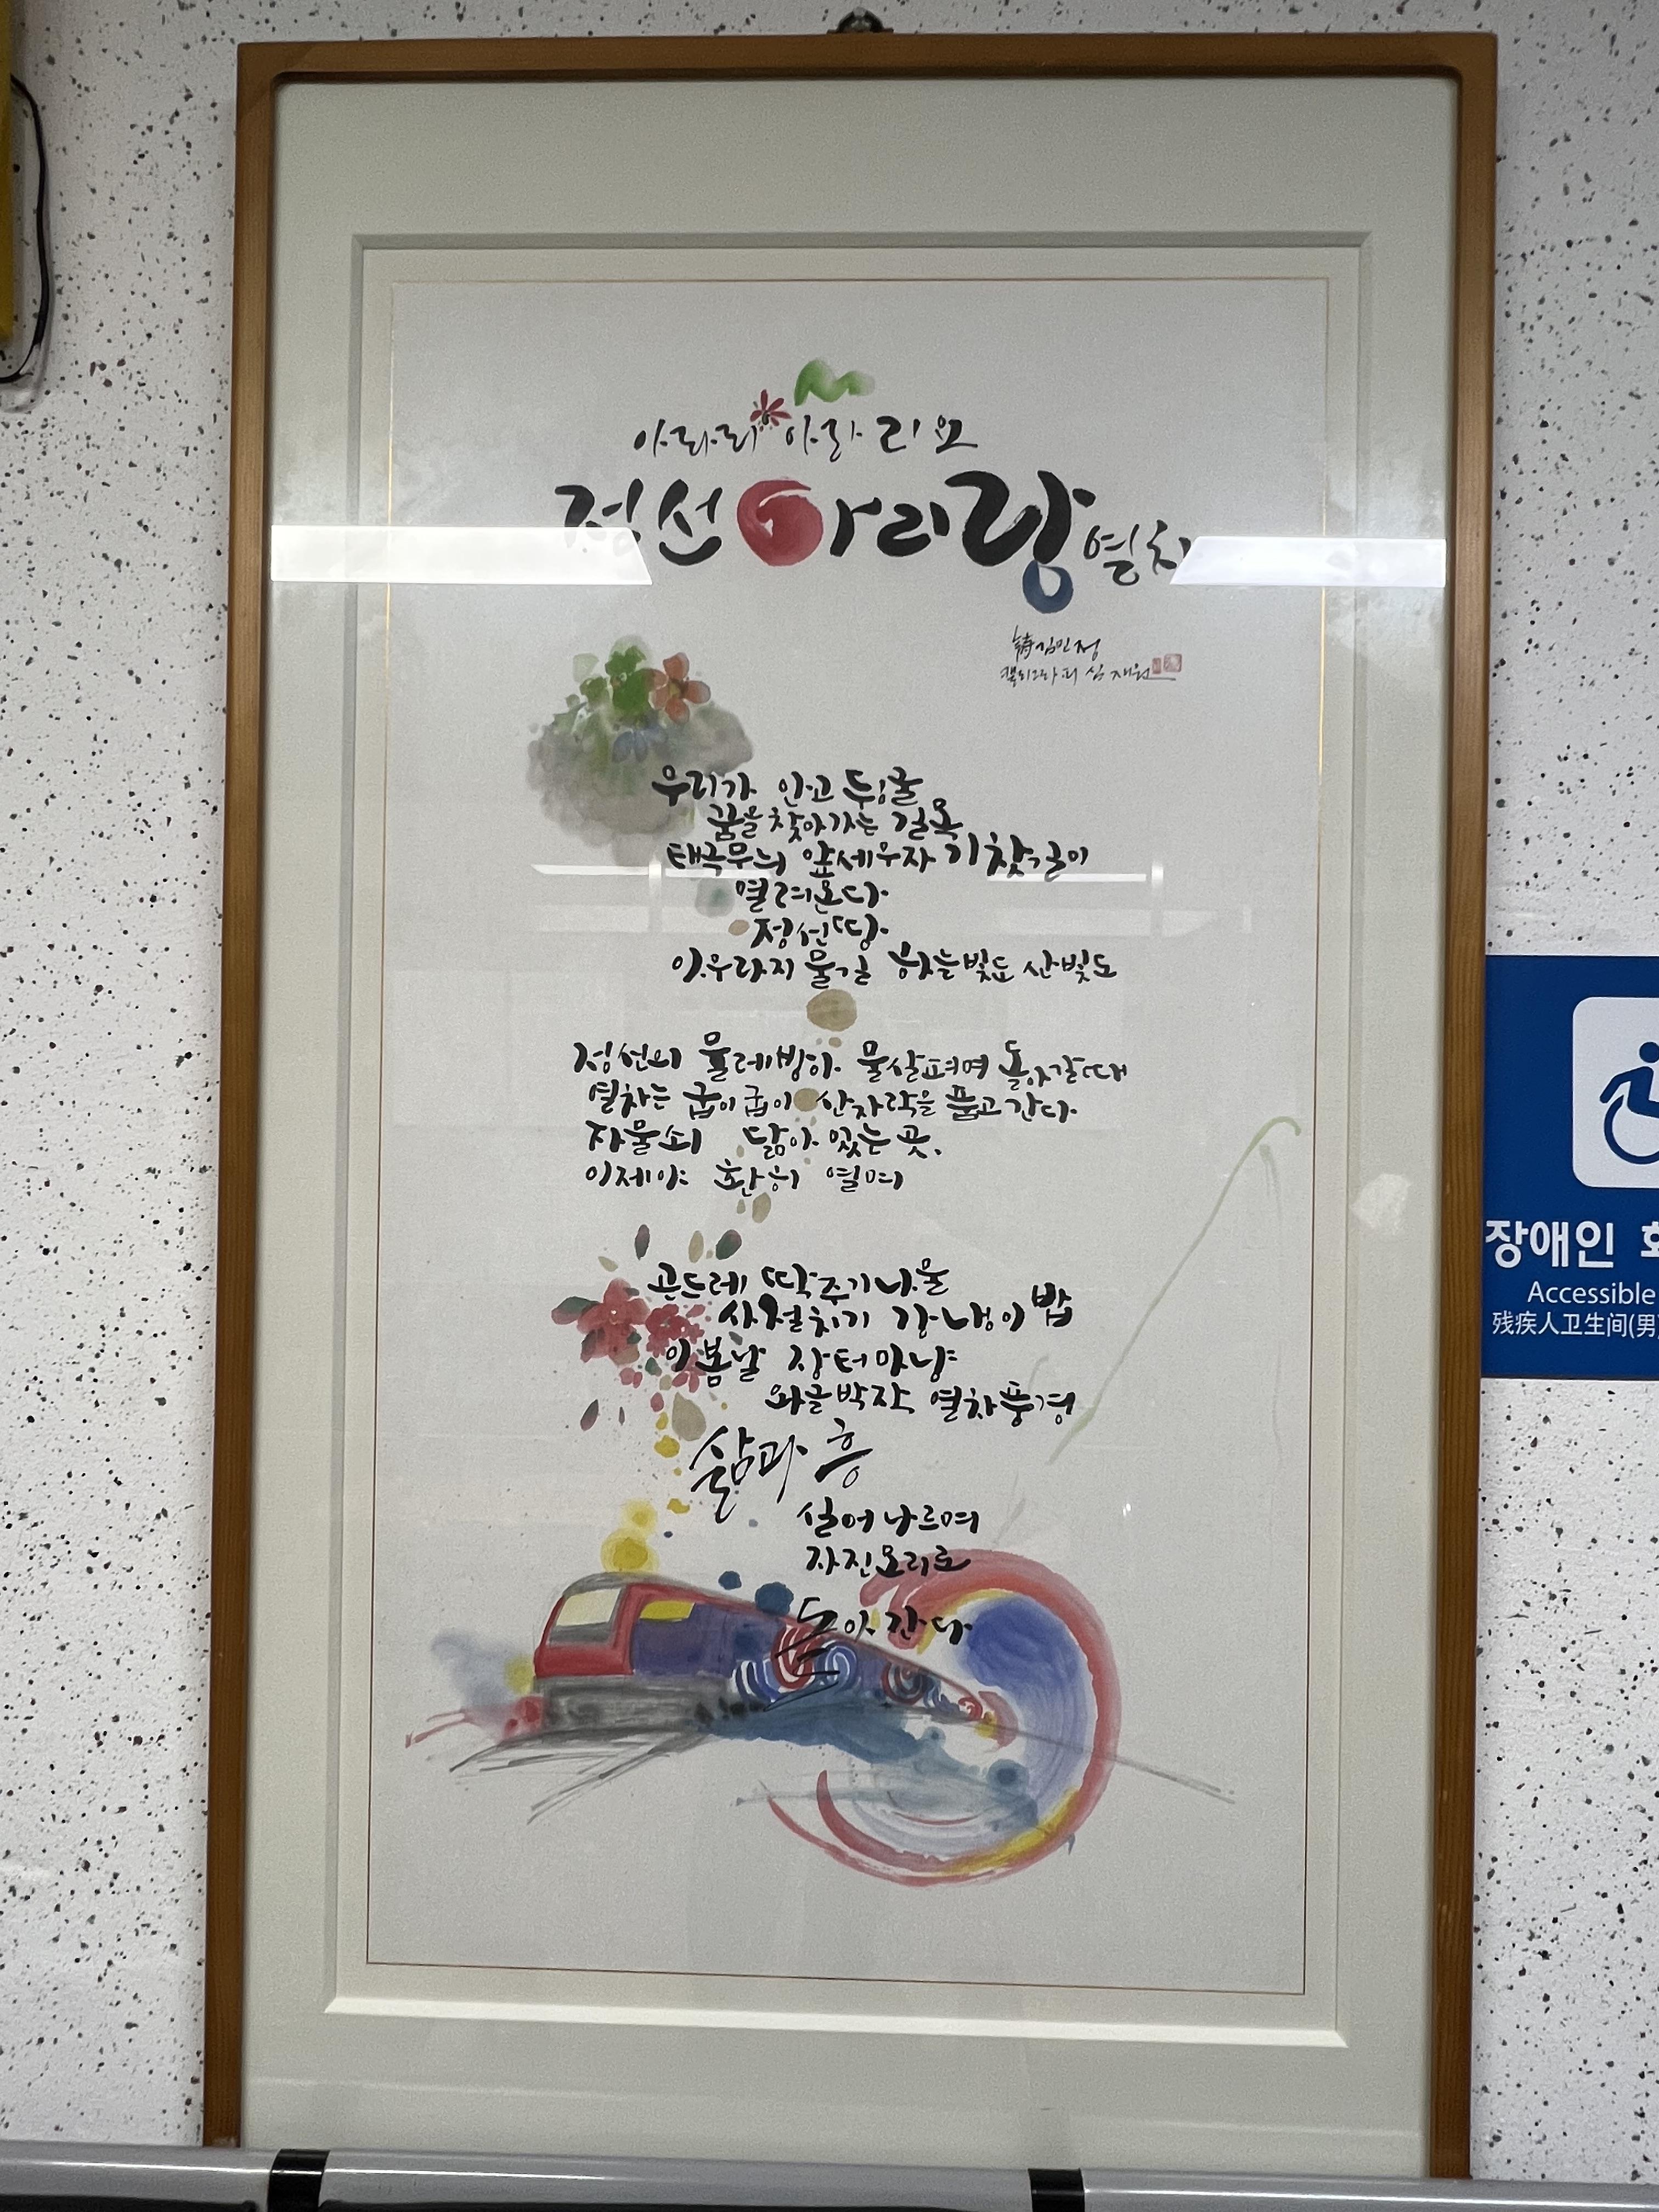 아라리 아라리요
정선 아리랑 열차
김민정
캘리그라피 심재원
우리가 안고 뒹굴
꿈을 찾아가는 길목
태극무늬 앞세우자 기찻길이
열려온다
정선땅
아우라지 물길 하늘빛도 산빛도
정선의 물레방아 물살펴며 돌아갈때
열차는 굽이굽이 산자락을 품고간다
자물쇠 닮아 있는 곳,
이제야 환히 열며
곤드레 딱주기나물
사절치기 강냉이 밥
이봄날 장터마냥
와글박작 열차풍경
삶과 흥
실어 나르며
자진모리로
돌아간다
장애인
Accessible
残疾人卫生间(男